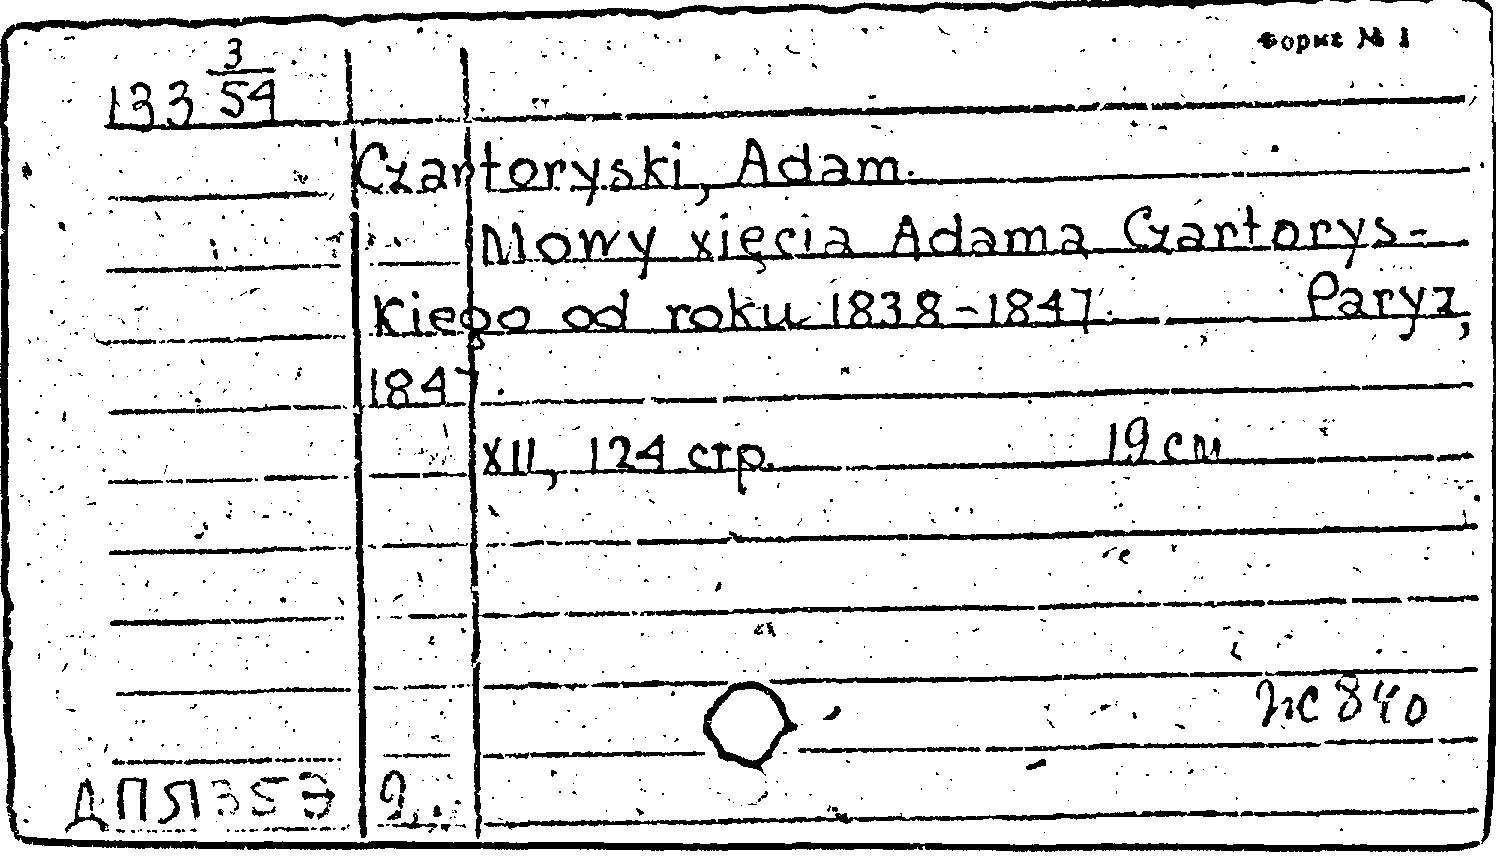 Форма № 1
133 3/54
Czartoryski, Adam.
Mowy xięcia Adama Czartorys-
kiego od roku 1838-1847. Paryz,
1847.
XII, 124 стр. 19 см
840
ДПЛ 353